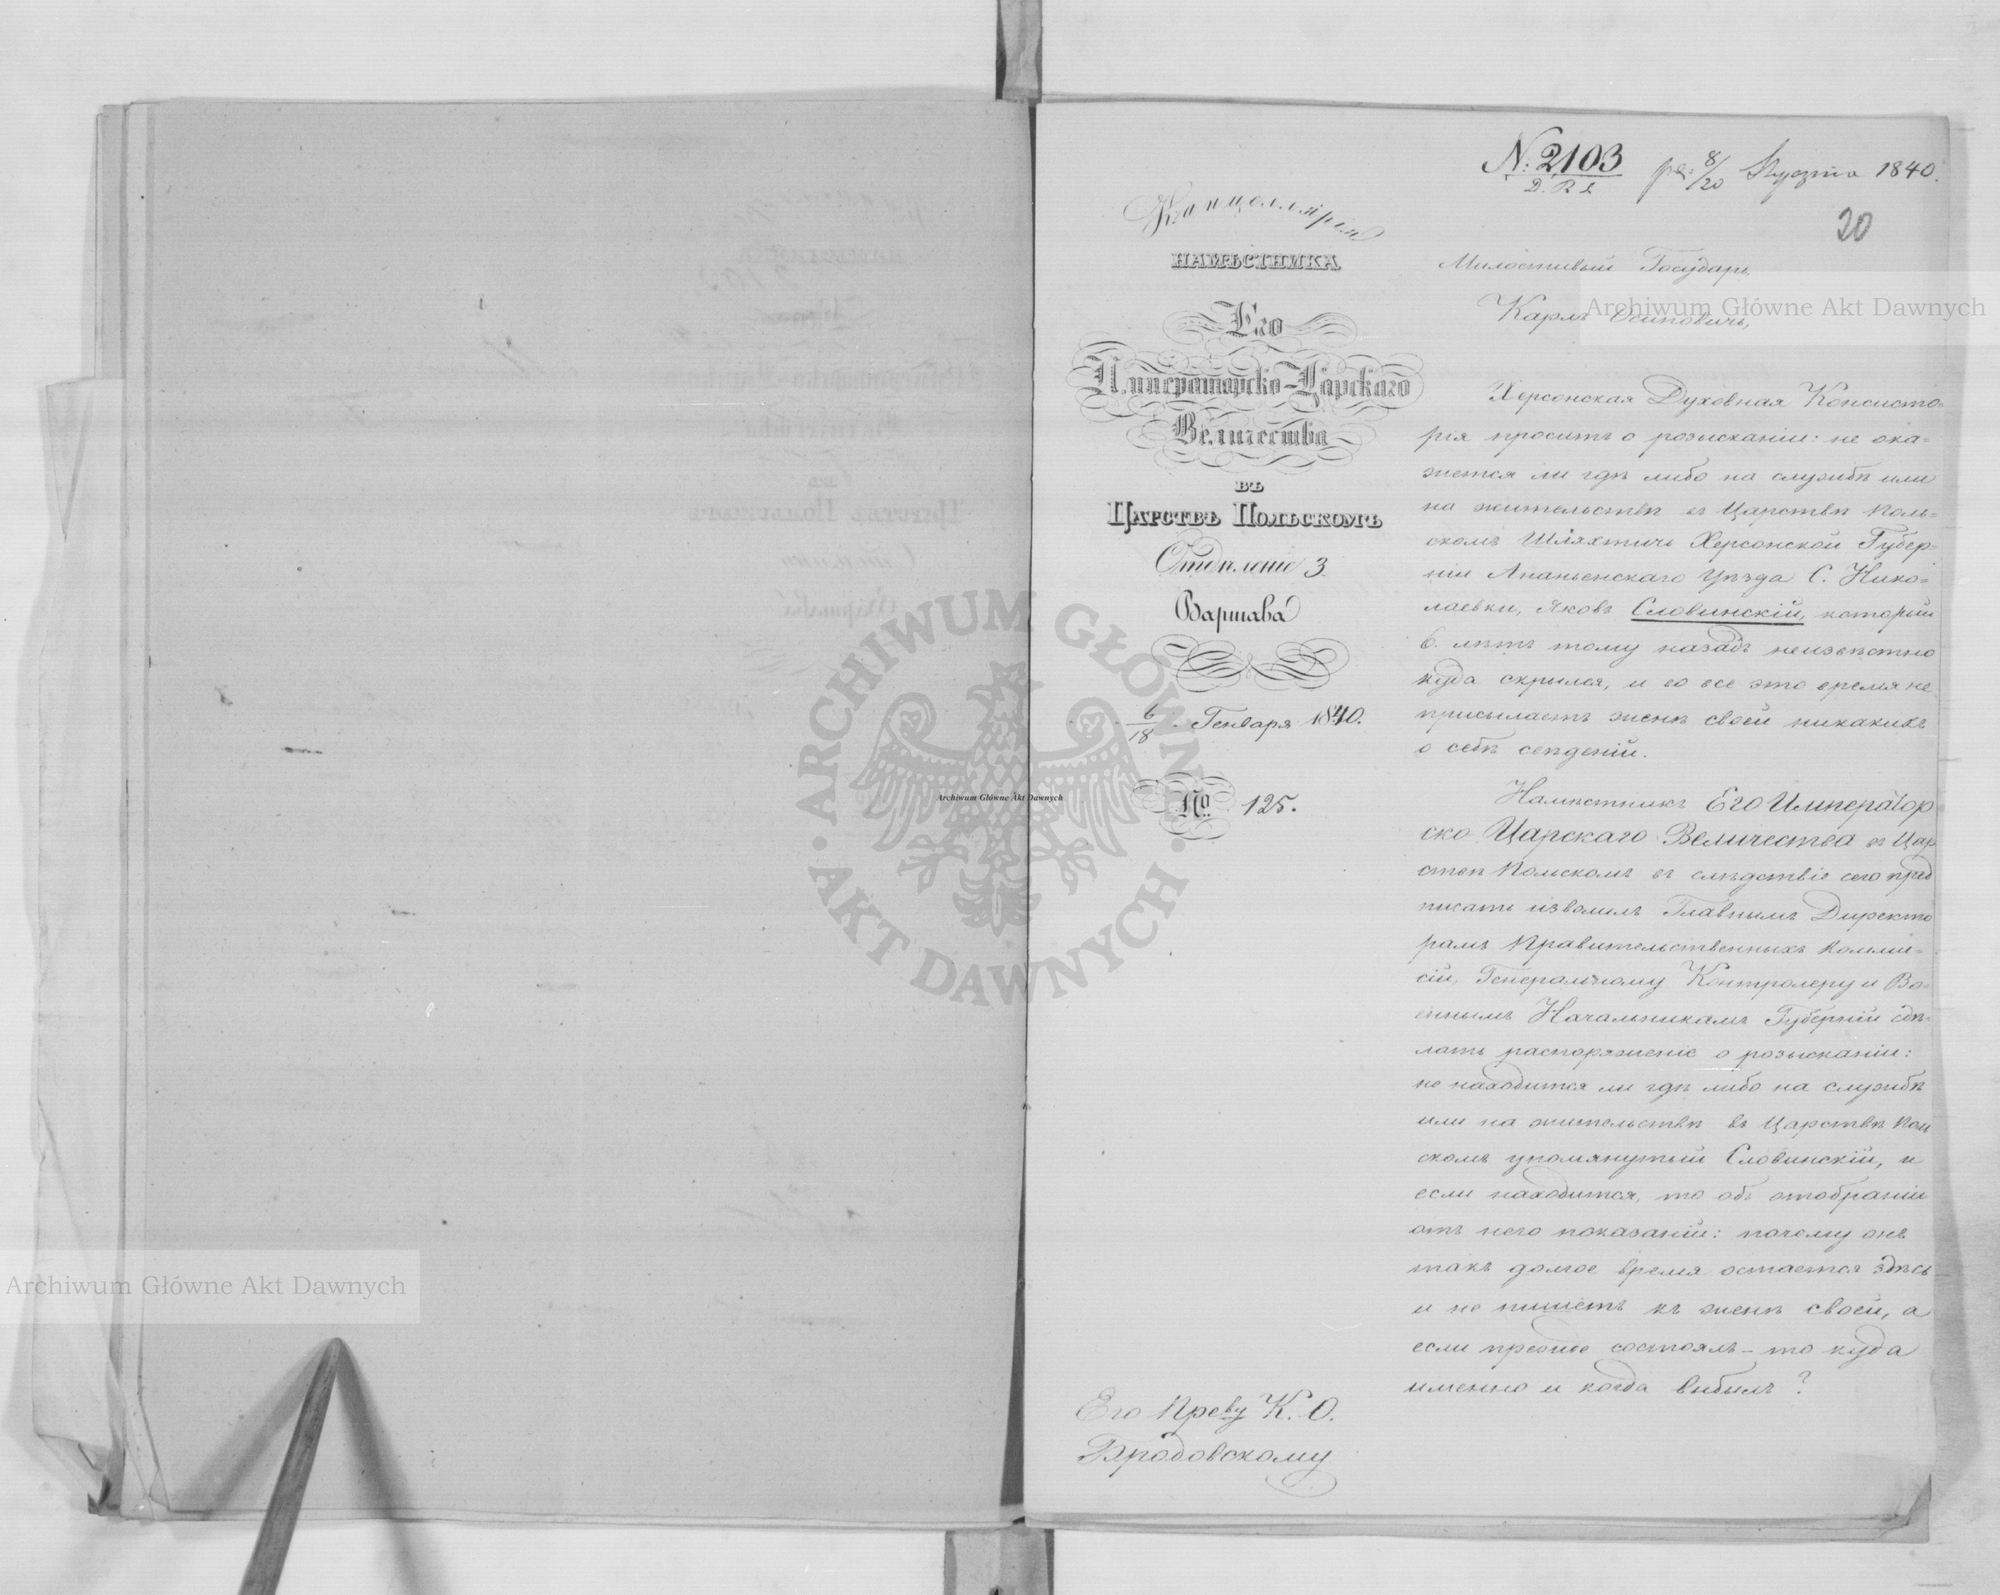 № 2103
D. R. S.
pr: 8/20 Stycznia 1840.
20
Канцеллярія
НАМѢСТНИКА
Его
Императорско-Царскаго
Величества
ВЪ
ЦАРСТВѢ ПОЛЬСКОМЪ
Отдѣленіе 3
Варшава
6/18 Генваря 1840.
№ 125.
Милостивый Государь,
Карлъ Осиповичь,
Херсонская Духовная Консисто-
рія проситъ о розысканіи: не ока-
жется ли гдѣ либо на службѣ или
на жительствѣ въ Царствѣ Поль-
скомъ Шляхтичь Херсонской Губер-
ніи Ананьевскаго Уѣзда С. Нико-
лаевки, Яковъ Словинскій, который
6. лѣтъ тому назадъ неизвѣстно
куда скрылся, и во все это время не
присылаетъ женѣ своей никакихъ
о себѣ свѣденій.
Намѣстникъ Его Император
ско Царскаго Величества въ Цар
ствѣ Польскомъ въ слѣдствіе сего пред
писать изволилъ Главнымъ Директо
рамъ Правительственныхъ Комми-
сій, Генеральному Контролеру и Во-
еннымъ Начальникамъ Губерній сдѣ-
лать распоряженіе о розысканіи:
не находится ли гдѣ либо на службѣ
или на жительствѣ въ Царствѣ Поль
скомъ упомянутый Словинскій, и
если находится, то объ отобраніи
отъ него показаній: почему онъ
такъ долгое время остается здѣсь
и не пишетъ къ женѣ своей, а
если прежде состоялъ – то куда
именно и когда выбылъ?
Его Прев-ву К. О.
Бродовскому
Archiwum Główne Akt Dawnych
Archiwum Główne Akt Dawnych
Archiwum Główne Akt Dawnych
ARCHIWUM GŁÓWNE · AKT DAWNYCH ·